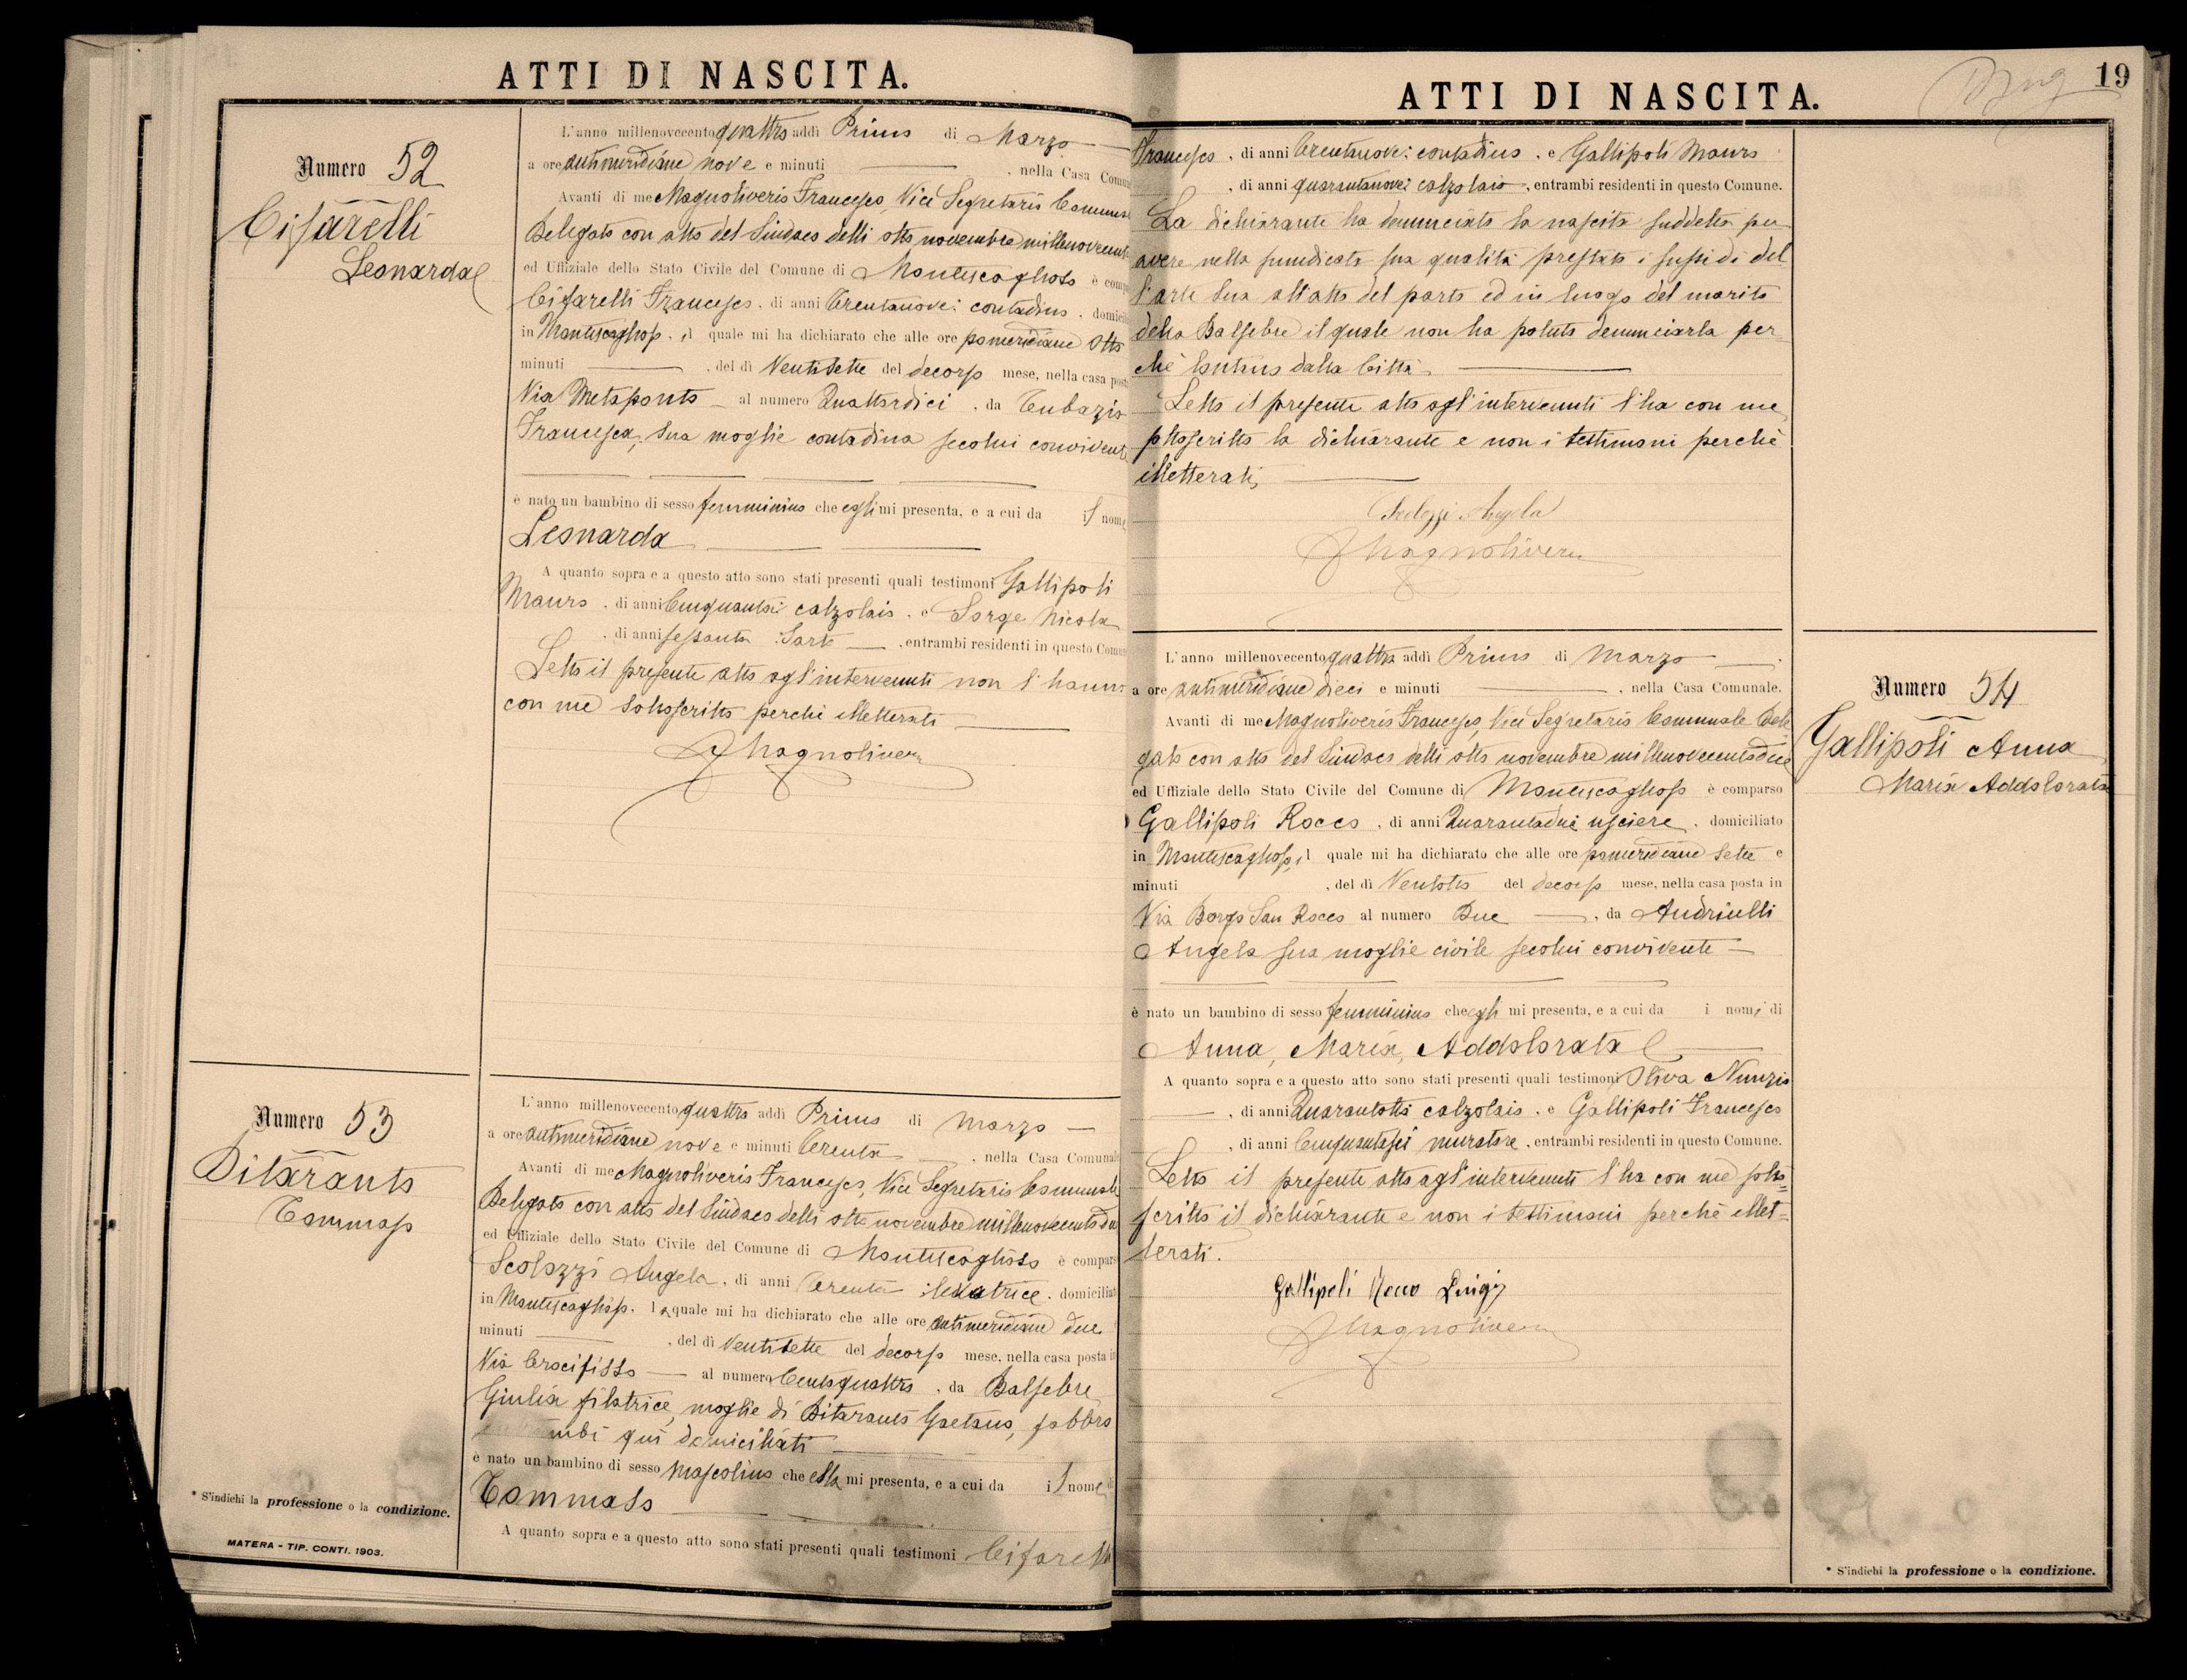 ATTI DI NASCITA.
Numero 52
Cifarelli
Leonarda
L'anno millenovecento quattro addì Primo di Marzo
a ore antimeridiane nove e minuti , nella Casa Comu
Avanti di me Magnoliveris Francesco, Vice Segretario Comuna
Delegato con atto del Sindaco delli otto novembre millenovecento
ed Uffiziale dello Stato Civile del Comune di Montescaglioso è comp
Cifarelli Francesco, di anni trentanove: contadino, domicili
in Montescaglioso, il quale mi ha dichiarato che alle ore pomeridiane otto
minuti , del dì Ventisette del decorso mese, nella casa posta
Via Metaponto al numero Quattordici, da Tubazio
Francesca, sua moglie contadina secolui convivente
è nato un bambino di sesso femminino che egli mi presenta, e a cui da il nome
Leonarda
A quanto sopra e a questo atto sono stati presenti quali testimoni Gallipoli
Mauro, di anni Cinquanta: calzolaio, e Sorge Nicola
, di anni sessanta: Sarto , entrambi residenti in questo Comun
Letto il presente atto agl'intervenuti non l'hanno
con me sottoscritto perchè illetterati
FMagnoliveris
Numero 53
Ditaranto
Tommaso
L'anno millenovecento quattro addì Primo di Marzo
a ore antimeridiane nove e minuti trenta , nella Casa Comunal
Avanti di me Magnoliveris Francesco, Vice Segretario Comunale
Delegato con atto del Sindaco delli otto novembre millenovecentodue
ed Uffiziale dello Stato Civile del Comune di Montescaglioso è compars
Scolozzi Angela, di anni trenta: levatrice, domiciliat
in Montescaglioso, la quale mi ha dichiarato che alle ore antimeridiane due
minuti , del dì Ventisette del decorso mese, nella casa posta in
Via Crocifisso al numero Centoquattro, da Balsebre
Giulia filatrice, moglie di Ditaranto Gaetano, fabbro
entrambi qui domiciliati
è nato un bambino di sesso mascolino che ella mi presenta, e a cui da il nome di
Tommaso
A quanto sopra e a questo atto sono stati presenti quali testimoni Cifarelli
* S'indichi la professione o la condizione.
MATERA - TIP. CONTI. 1903.
ATTI DI NASCITA.
19
Francesco, di anni trentanove: contadino, e Gallipoli Mauro
, di anni quarantanove: calzolaio, entrambi residenti in questo Comune.
La dichiarante ha denunciato la nascita suddetta per
avere nella sunidicata sua qualità prestato i sussidi del
l'arte sua all'atto del parto ed in luogo del marito
della Balsebre il quale non ha potuto denunciarla per
chè lontano dalla Città
Letto il presente atto agl'intervenuti l'ha con me
sottoscritto la dichiarante e non i testimoni perchè
illetterati,
Scolozzi Angela
FMagnoliveris
Numero 54
Gallipoli Anna
Maria Addolorata
L'anno millenovecento quattro addì Primo di Marzo
a ore antimeridiane dieci e minuti , nella Casa Comunale.
Avanti di me Magnoliveris Francesco, Vice Segretario Comunale Dele
gato con atto del Sindaco delli otto novembre millenovecentodue
ed Uffiziale dello Stato Civile del Comune di Montescaglioso è comparso
Gallipoli Rocco, di anni Quarantadue usciere, domiciliato
in Montescaglioso, il quale mi ha dichiarato che alle ore pomeridiane sette e
minuti , del dì Ventotto del decorso mese, nella casa posta in
Via Borgo San Rocco al numero Due , da Andriulli
Angela sua moglie civile secolui convivente
è nato un bambino di sesso femminino che egli mi presenta, e a cui da i nomi di
Anna, Maria, Addolorata
A quanto sopra e a questo atto sono stati presenti quali testimoni Oliva Nunzio
, di anni Quarantotto calzolaio, e Gallipoli Francesco
, di anni Cinquantasei muratore, entrambi residenti in questo Comune.
Letto il presente atto agl'intervenuti l'ha con me sotto=
scritto il dichiarante e non i testimoni perchè illet=
terati.
Gallipoli Rocco Luigi
FMagnoliveris
* S'indichi la professione o la condizione.